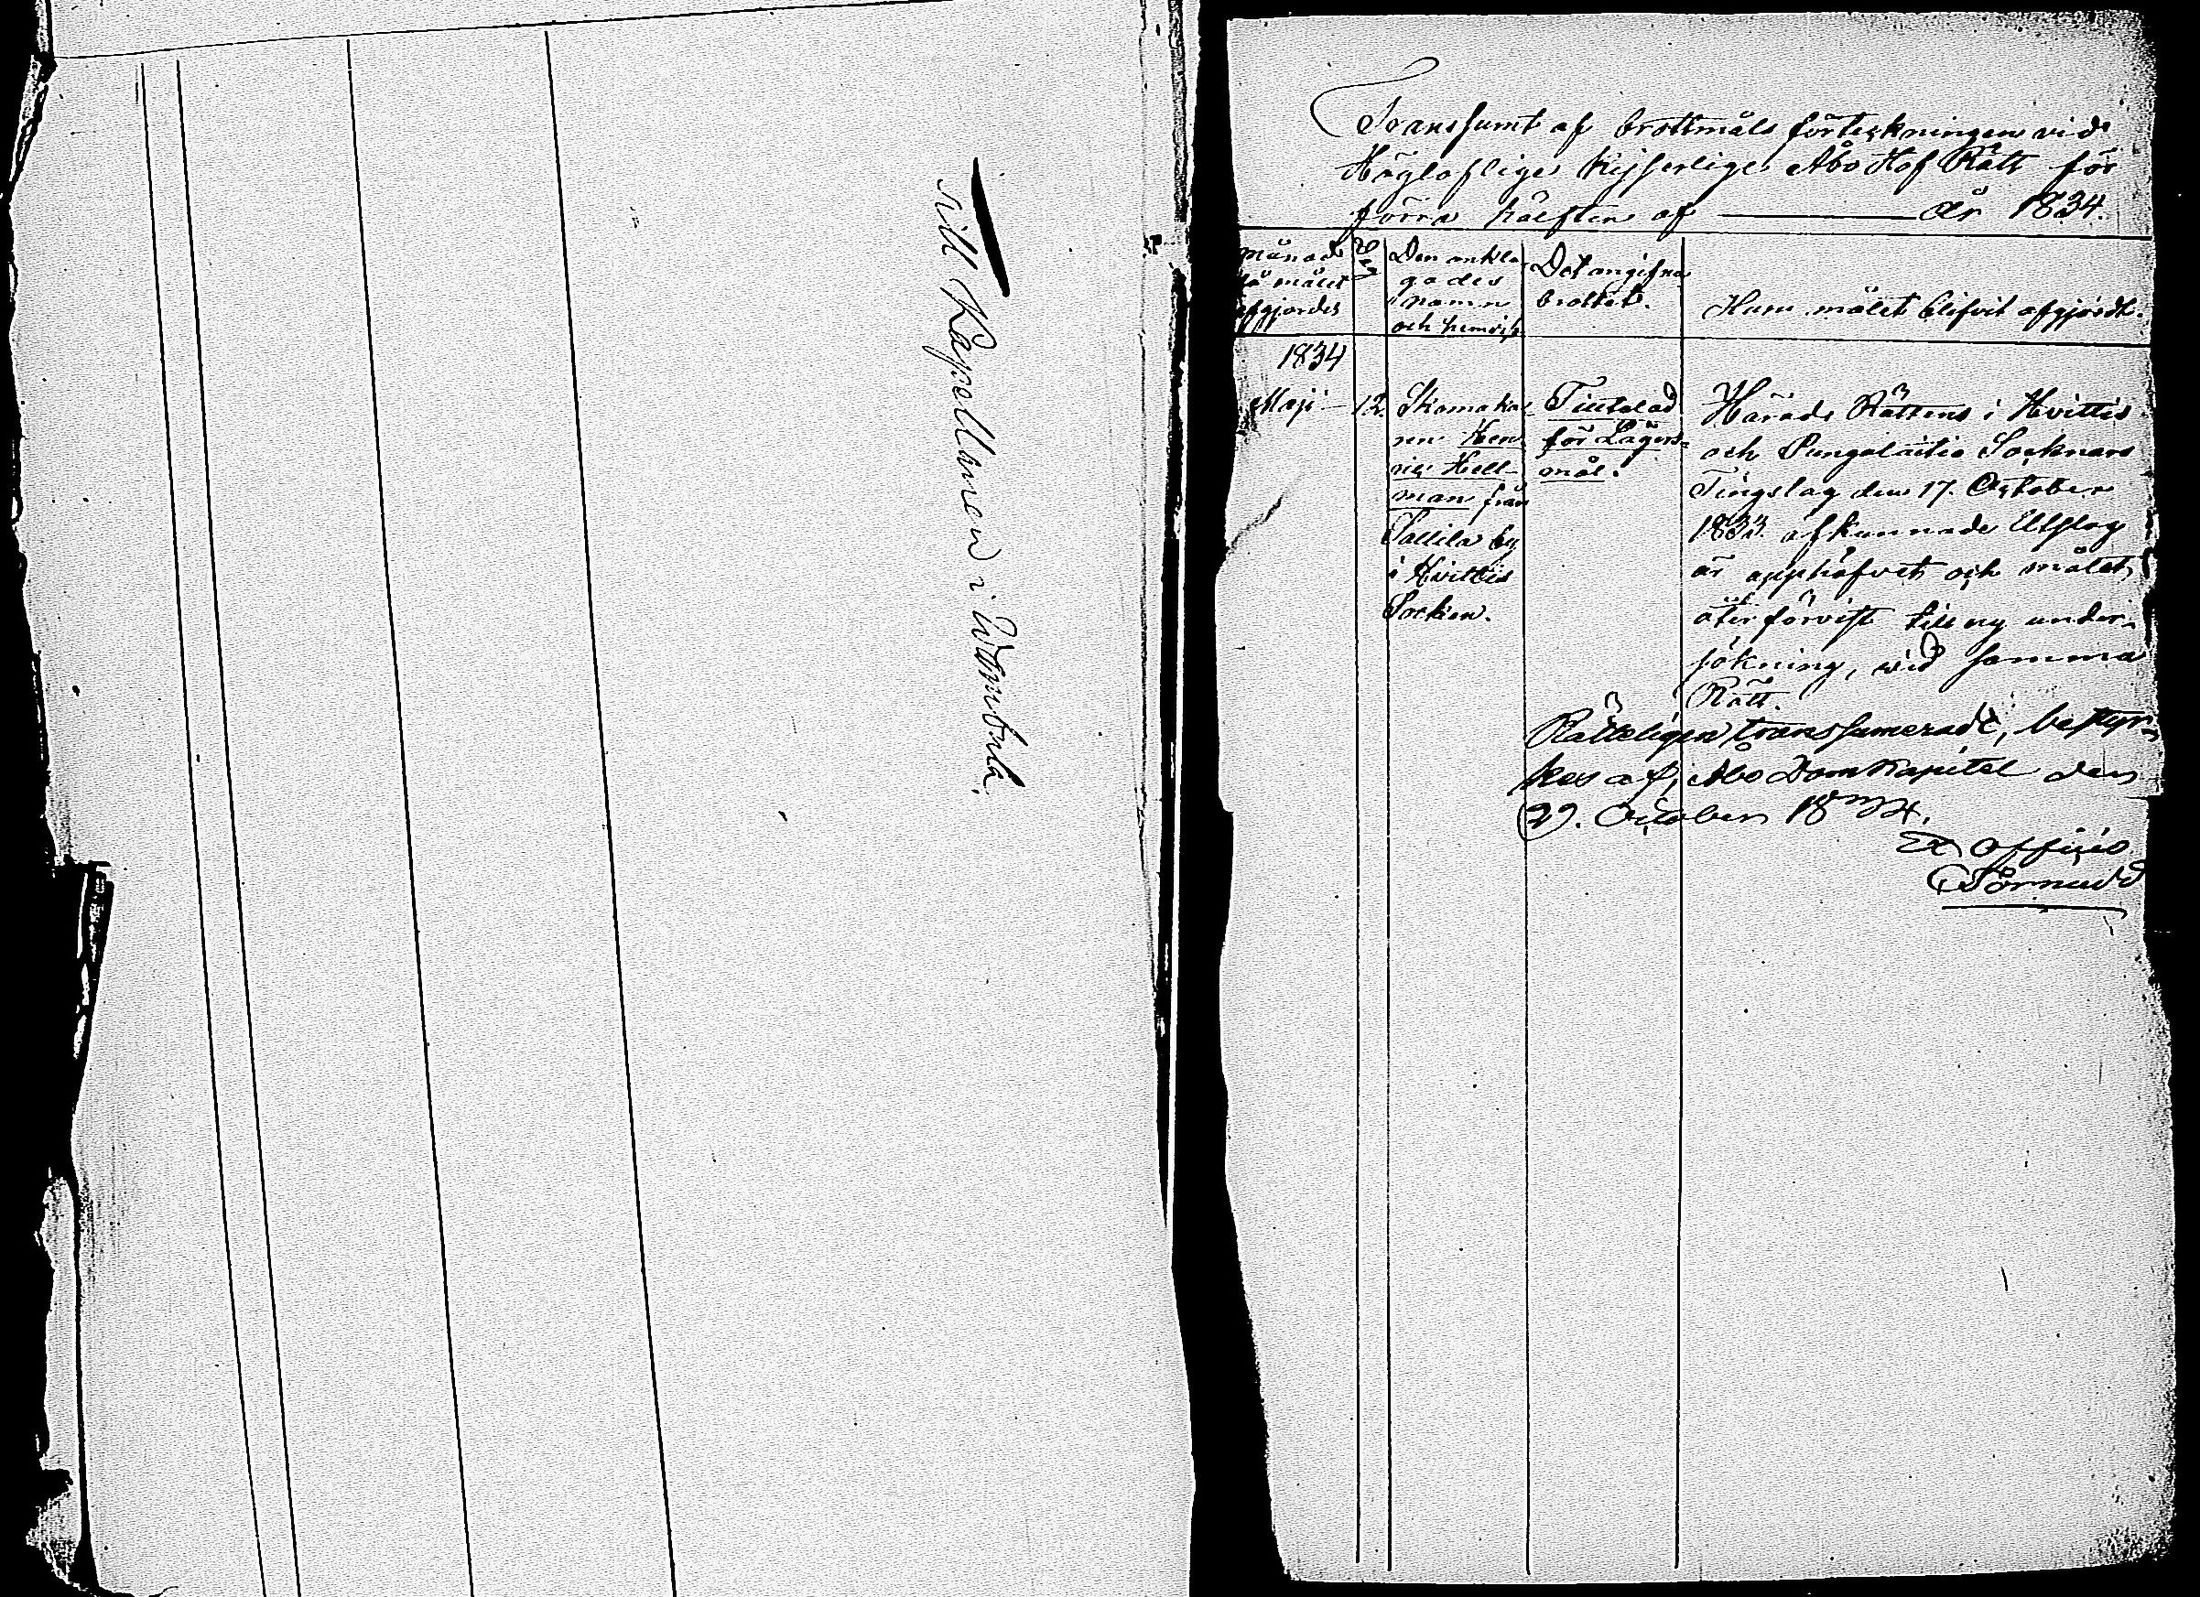 till Kapellanen i Wambula.
Transsumt af brottmåls förteckningen vid
Högloflige Kejserlige Åbo Hof Rätt för
förra hälften af ——— år 1834.
Månad
då målet
afgjordes
Den ankla-
gades
namn
och hemvist
Det angifna
brottet.
Huru målet blifvit afgjordt.
1834
Maji — 12.
Skomaka-
ren Hen-
ric Hell-
man från
Sallila by
i Hvittis
Socken.
Tilltalad
för Lägers-
mål.
Härads Rättens i Hvittis
och Pungalaitio Socknars
Tingslag den 17. October
1833 afkunnade Utslag
är upphäfvet och målet
återförvist till ny under-
sökning, vid samma
Rätt.
Rätteligen transsumeradt, bestyr-
kes af, Åbo Domkapitel den
29. October 1834.
Ex officio
Törnudd